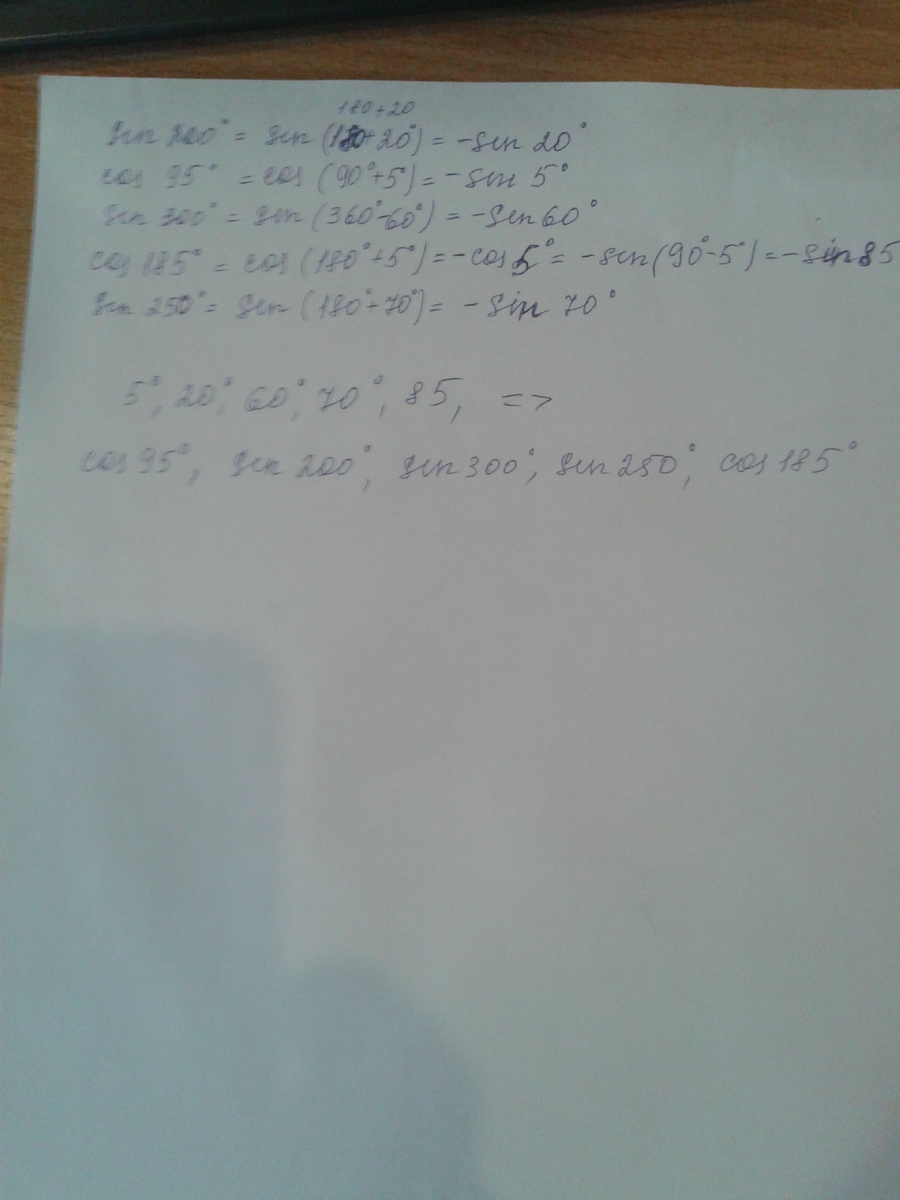 180+20
sin 200° = sin (180+20°) = -sin 20°
cos 95° = cos (90°+5°) = -sin 5°
sin 300° = sin (360°-60°) = -sin 60°
cos 185° = cos (180°+5°) = -cos 5° = -sin (90°-5°) = -sin 85
sin 250° = sin (180°+70°) = - sin 70°
5°, 20°, 60°, 70°, 85, =>
cos 95°, sin 200°, sin 300°, sin 250°, cos 185°